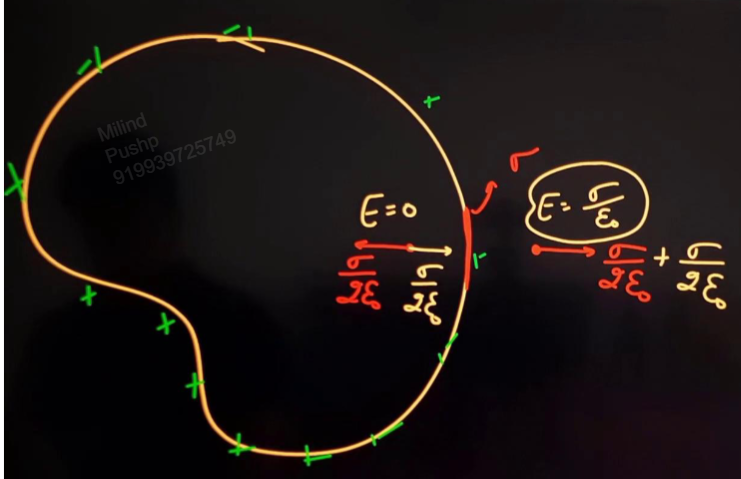 Milind
Pushp
919939725749
σ
E = σ/ε₀
E = 0
σ/2ε₀
σ/2ε₀
σ/2ε₀ + σ/2ε₀